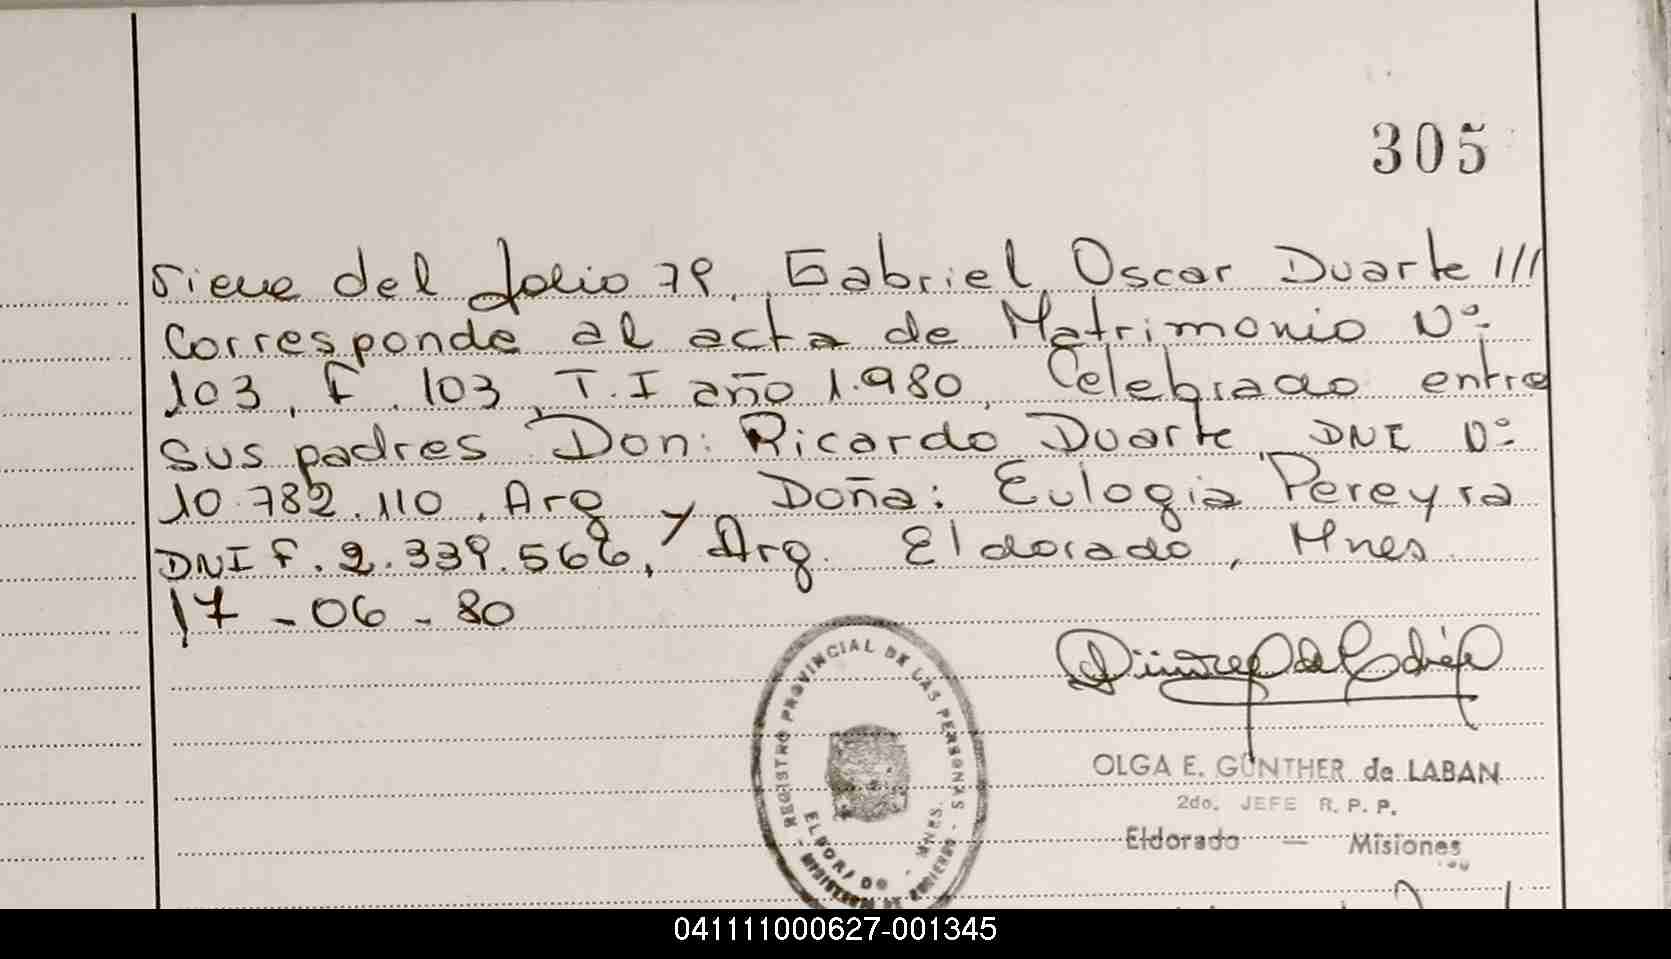 305
viene del folio 79, Gabriel Oscar Duarte ///
Corresponde al acta de Matrimonio Nº
103, F. 103, T. I año 1.980, Celebrado entre
sus padres Don: Ricardo Duarte, DNI Nº
10.782.110, Arg y Doña: Eulogia Pereyra
DNI F. 2.339.566, Arg. Eldorado, Mnes
17-06-80
REGISTRO PROVINCIAL DE LAS PERSONAS
ELDORADO - MNES.
MINISTERIO DE GOBIERNO
OLGA E. GÜNTHER de LABAN
2do. JEFE R. P. P.
Eldorado — Misiones
041111000627-001345